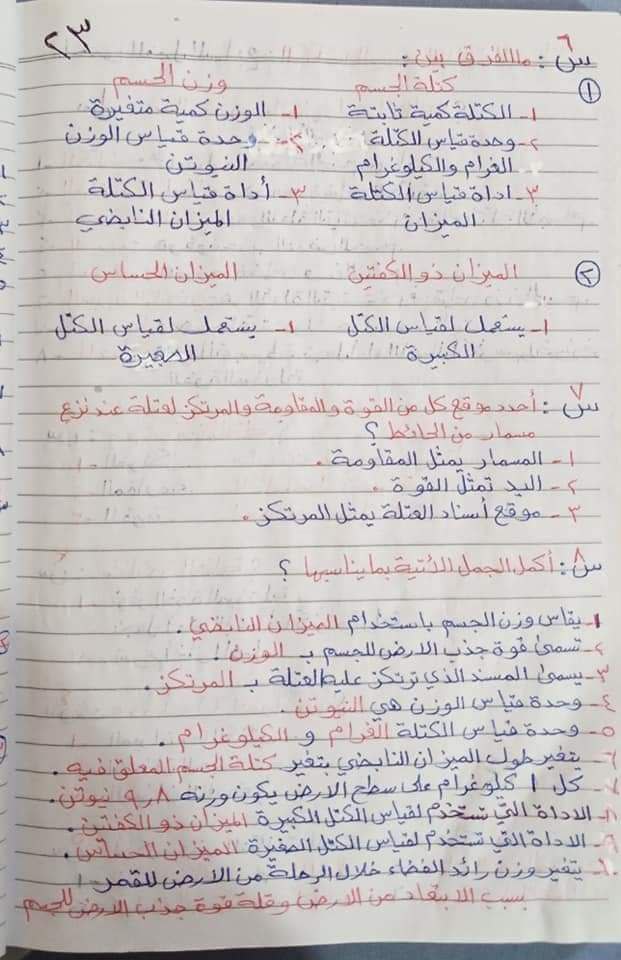 ٢٣
س٦: ما الفرق بين:
① كتلة الجسم    وزن الجسم
١- الكتلة كمية ثابتة    ١- الوزن كمية متغيرة
٢- وحدة قياس الكتلة    ٢- وحدة قياس الوزن
الغرام والكيلوغرام    النيوتن
٣- اداة قياس الكتلة    ٣- أداة قياس الكتلة
الميزان    الميزان النابضي
② الميزان ذو الكفتين    الميزان الحساس
١- يستعمل لقياس الكتل    ١- يستعمل لقياس الكتل
الكبيرة    الصغيرة
س٧: أحدد موقع كل من القوة والمقاومة والمرتكز لعتلة عند نزع
مسمار من الحائط؟
١- المسمار يمثل المقاومة.
٢- اليد تمثل القوة.
٣- موقع أسناد العتلة يمثل المرتكز.
س٨: أكمل الجمل الآتية بما يناسبها؟
١- يقاس وزن الجسم باستخدام الميزان النابضي.
٢- تسمى قوة جذب الارض للجسم بـ الوزن.
٣- يسمى المسند الذي ترتكز عليه العتلة بـ المرتكز.
٤- وحدة قياس الوزن هي النيوتن.
٥- وحدة قياس الكتلة الغرام و الكيلوغرام.
٦- يتغير طول الميزان النابضي بتغير كتلة الجسم المعلق فيه.
٧- كل ١ كلوغرام على سطح الارض يكون وزنه ٩,٨ نيوتن.
٨- الاداة التي تستخدم لقياس الكتل الكبيرة الميزان ذو الكفتين.
٩- الاداة التي تستخدم لقياس الكتل الصغيرة الميزان الحساس.
١٠- يتغير وزن رائد الفضاء خلال الرحلة من الارض للقمر
بسبب الابتعاد من الارض وقلة قوة جذب الارض للجسم